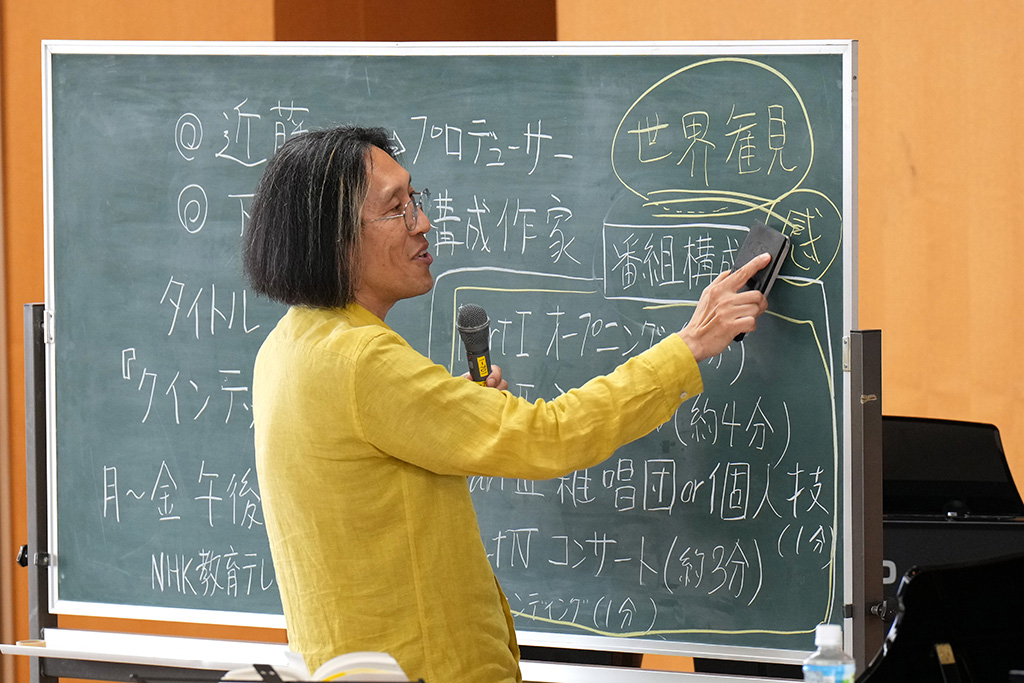 @近藤 →プロデューサー
世界観
@下 構成作家
感
番組構成
タイトル
Part I オープニング
『クインテ
(約4分)
Part III 雑唱団or個人技
月〜金 午後
(1分)
Part IV コンサート(約3分)
NHK教育テレ
ンディング(1分)